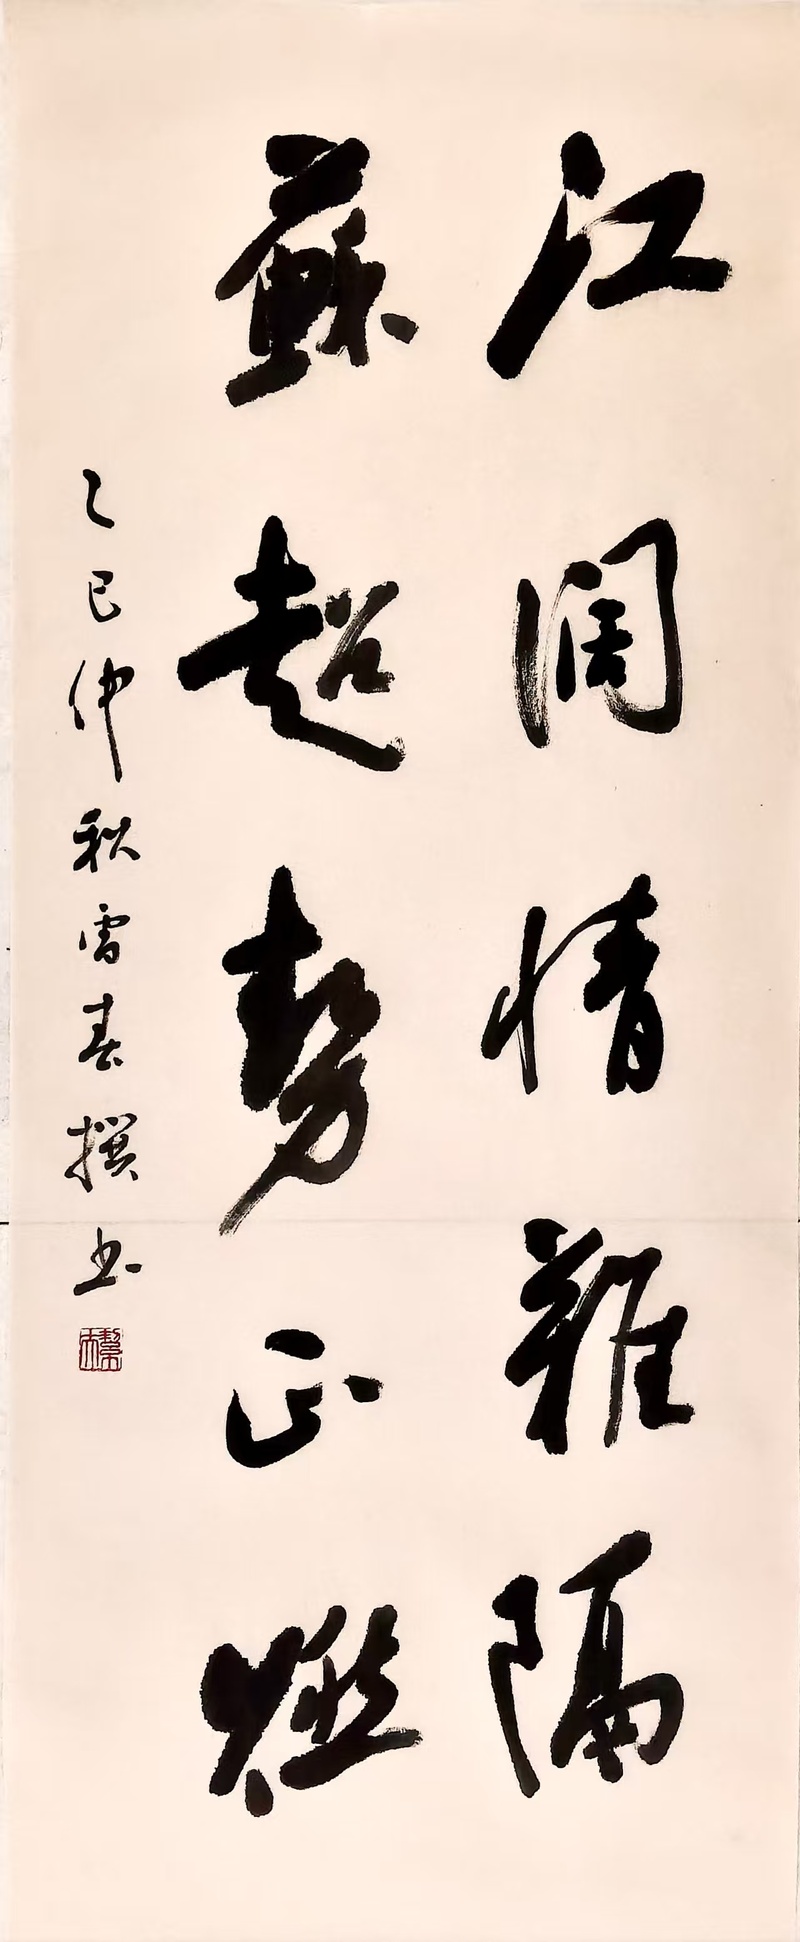 江阔情難隔
蘇超勢正燃
乙巳仲秋雷春撰书